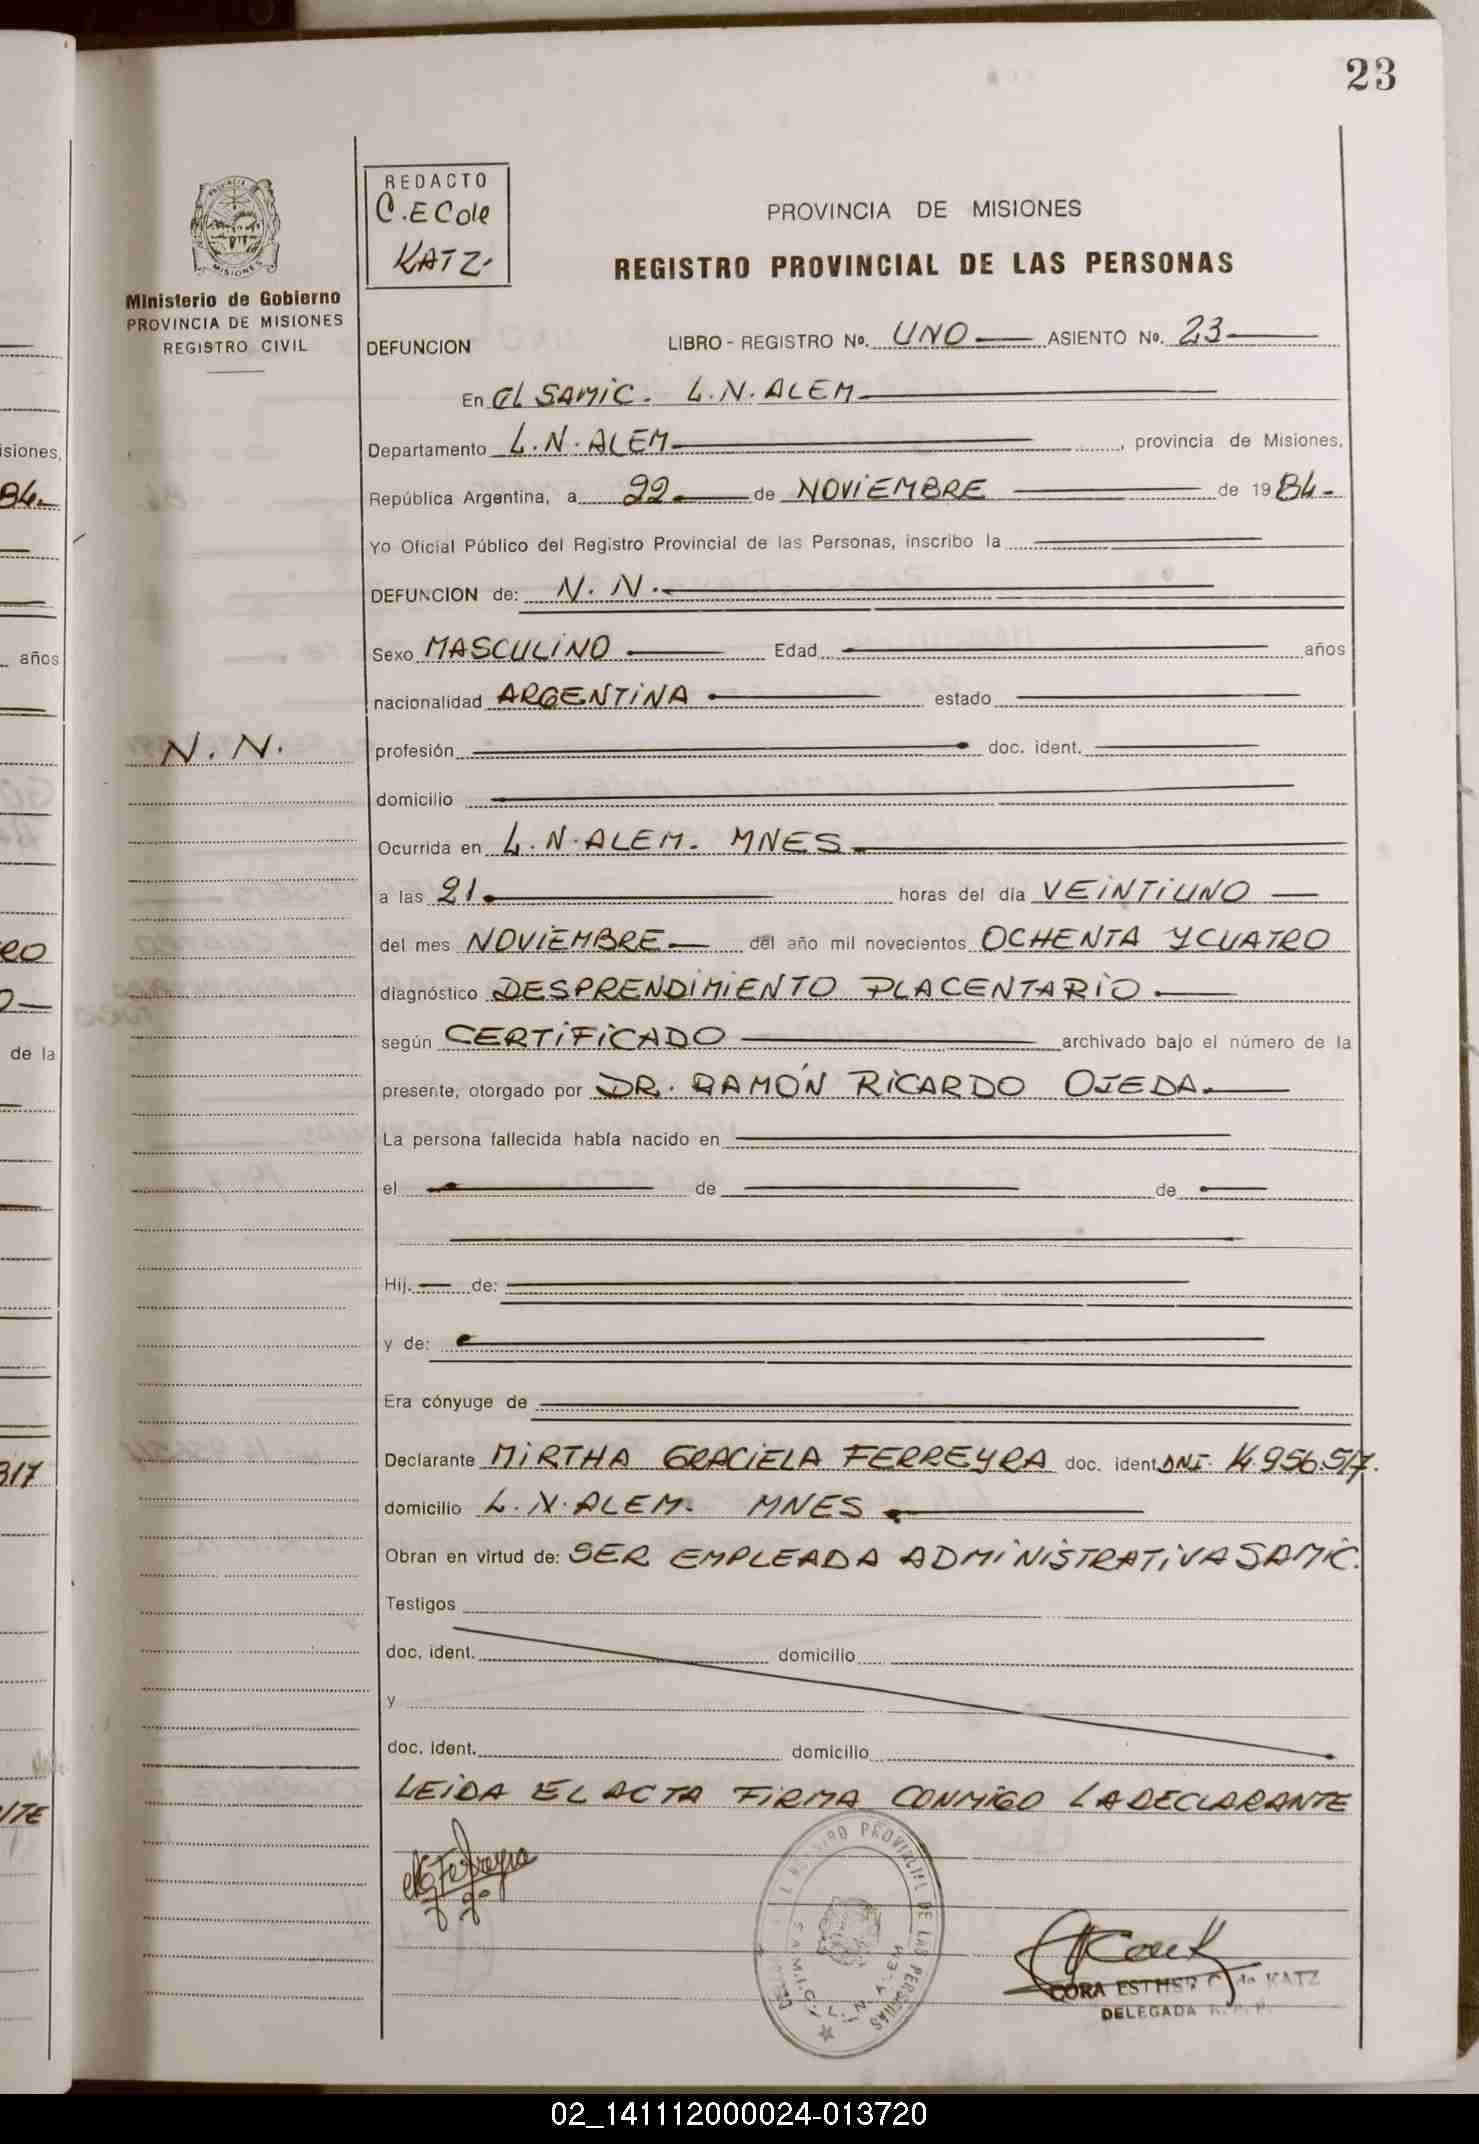 23
REDACTO
C. E Cole
KATZ.
PROVINCIA DE MISIONES
REGISTRO PROVINCIAL DE LAS PERSONAS
MISIONES
Ministerio de Gobierno
PROVINCIA DE MISIONES
REGISTRO CIVIL
DEFUNCION LIBRO - REGISTRO No. UNO ASIENTO No. 23
En El SAMIC. L.N. ALEM
Departamento L.N. ALEM , provincia de Misiones,
República Argentina, a 22 de NOVIEMBRE de 1984.
Yo Oficial Público del Registro Provincial de las Personas, inscribo la
DEFUNCION de: N. N.
Sexo MASCULINO Edad años
nacionalidad ARGENTINA estado
N. N.
profesión doc. ident.
domicilio
Ocurrida en L. N. ALEM. MNES
a las 21 horas del día VEINTIUNO
del mes NOVIEMBRE del año mil novecientos OCHENTA Y CUATRO
diagnóstico DESPRENDIMIENTO PLACENTARIO
según CERTIFICADO archivado bajo el número de la
presente, otorgado por DR. RAMÓN RICARDO OJEDA
La persona fallecida había nacido en
el de de
Hij. de:
y de:
Era cónyuge de
Declarante MIRTHA GRACIELA FERREYRA doc. ident. DNI. 14.956.517.
domicilio L. N. ALEM. MNES
Obran en virtud de: SER EMPLEADA ADMINISTRATIVA SAMIC.
Testigos
doc. ident. domicilio
y
doc. ident. domicilio
LEIDA EL ACTA FIRMA CONMIGO LA DECLARANTE
Ferreyra
REGISTRO PROVINCIAL DE LAS PERSONAS
S.A.M.I.C. L. N. ALEM
CORA ESTHER C. de KATZ
DELEGADA R. P. P.
isiones,
84
años
RO
de la
317
NTE
02_141112000024-013720